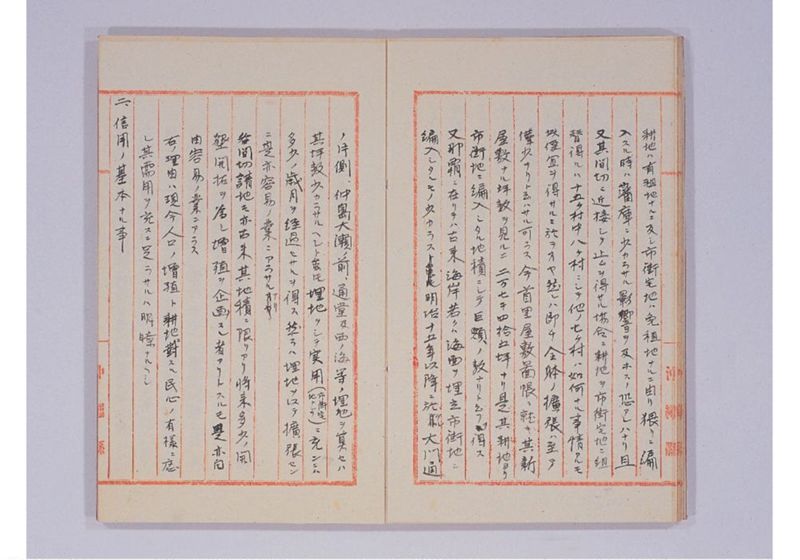 耕地ハ有租地ナルニ反シ市街宅地ハ免租地ナルニ由リ猥リニ編
入スル時ハ藩庫ニ少カラサル影響ヲ及ホスノ恐アレハナリ且
又其間切ニ近接シ止ムヲ得サル場合ニ耕地ヲ市街宅地ニ組
替得ルハ十五ケ村中八ケ村ニシテ他ノ七ケ村ハ如何ナル事情アルモ
故障ヲ得サルニ於テオヤ然レハ即チ全躰ノ擴張ハ至テ
僅少ナリト云ハサル可ラス今首里屋敷箇帳ニ就キ其新
屋敷ナル坪数ヲ見ルニ二万七千四拾五坪ナリ是其耕地ヨリ
市街地ニ編入シタル地積ニシテ巨額ノ数ナリト云フヲ得ス
又那覇ニ在リテハ古来海岸若クハ海面ヲ埋立市街地ニ
編入シタルモノ少カラスト雖モ明治十五年以降ニ於テ大門通
ノ片側仲島大濱前ノ通堂及西ノ海等ノ埋地ヲ算セハ
其坪数少カラサルヘシト雖モ埋地ヲシテ実用ニ充ンニハ
多少ノ歳月ヲ経過セサルヲ得ス然ラハ埋地ヲ以テ擴張セン
ニ是亦容易ノ業ニアラサルナリ
各間切請地モ亦古来其地積ニ限リアリ将来多少ノ開
墾開拓ヲ為シ増殖ヲ企画スル者アリトスルモ是亦自
由容易ノ業ニアラス
右ノ理由ハ現今人口ノ増殖ト耕地ニ對スル民心ノ有様ニ応
シ其需用ヲ充スニ足ラサルハ明瞭ナルヘシ
二、信用ノ基本ナル事
沖縄縣